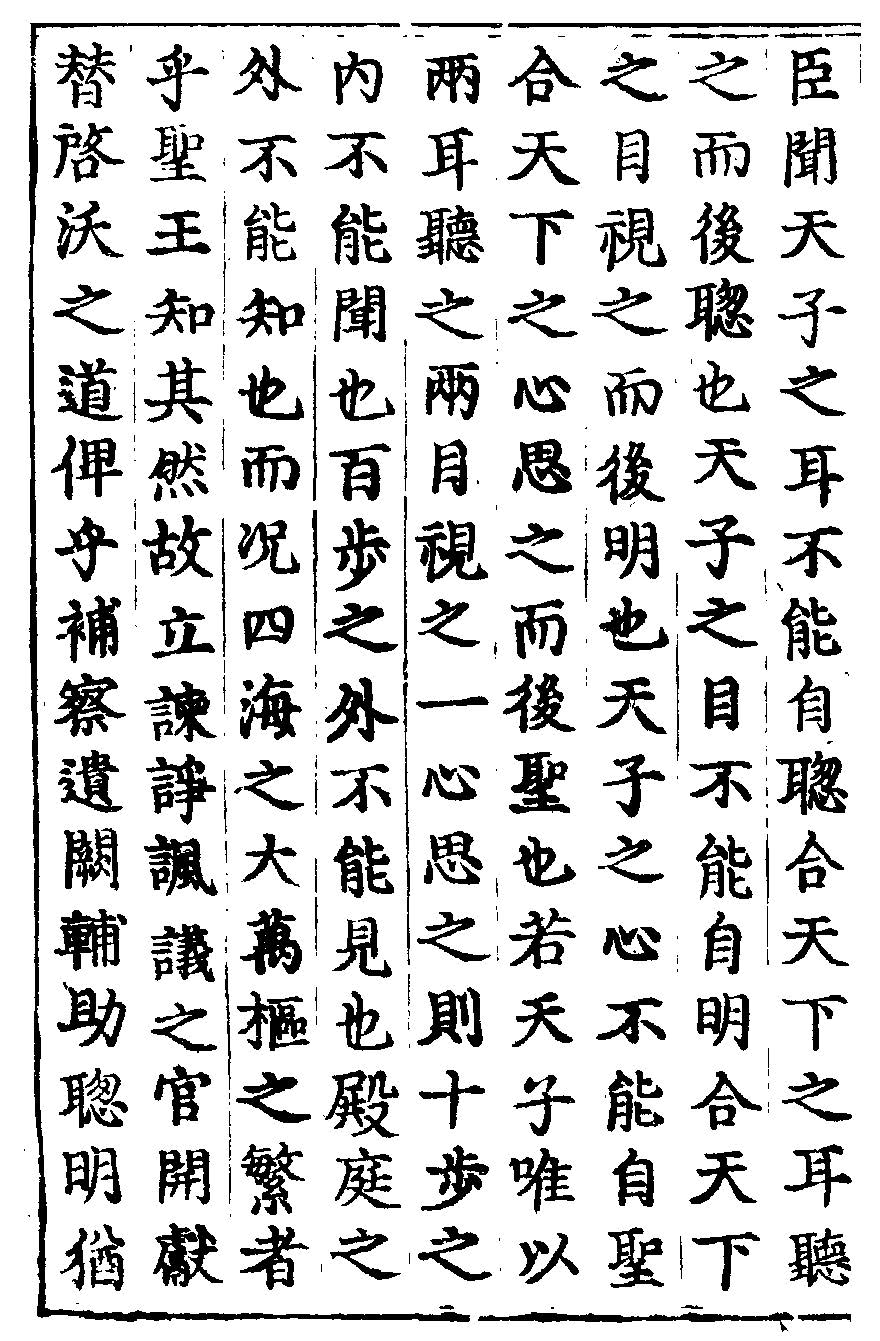 臣聞天子之耳不能自聦合天下之耳聽
之而後聦也天子之目不能自明合天下
之目視之而後明也天子之心不能自聖
合天下之心思之而後聖也若天子唯以
兩耳聽之兩目視之一心思之則十步之
內不能聞也百步之外不能見也殿庭之
外不能知也而况四海之大萬樞之繁者
乎聖王知其然故立諫諍諷議之官開獻
替啓沃之道俾乎補察遺闕輔助聦明猶